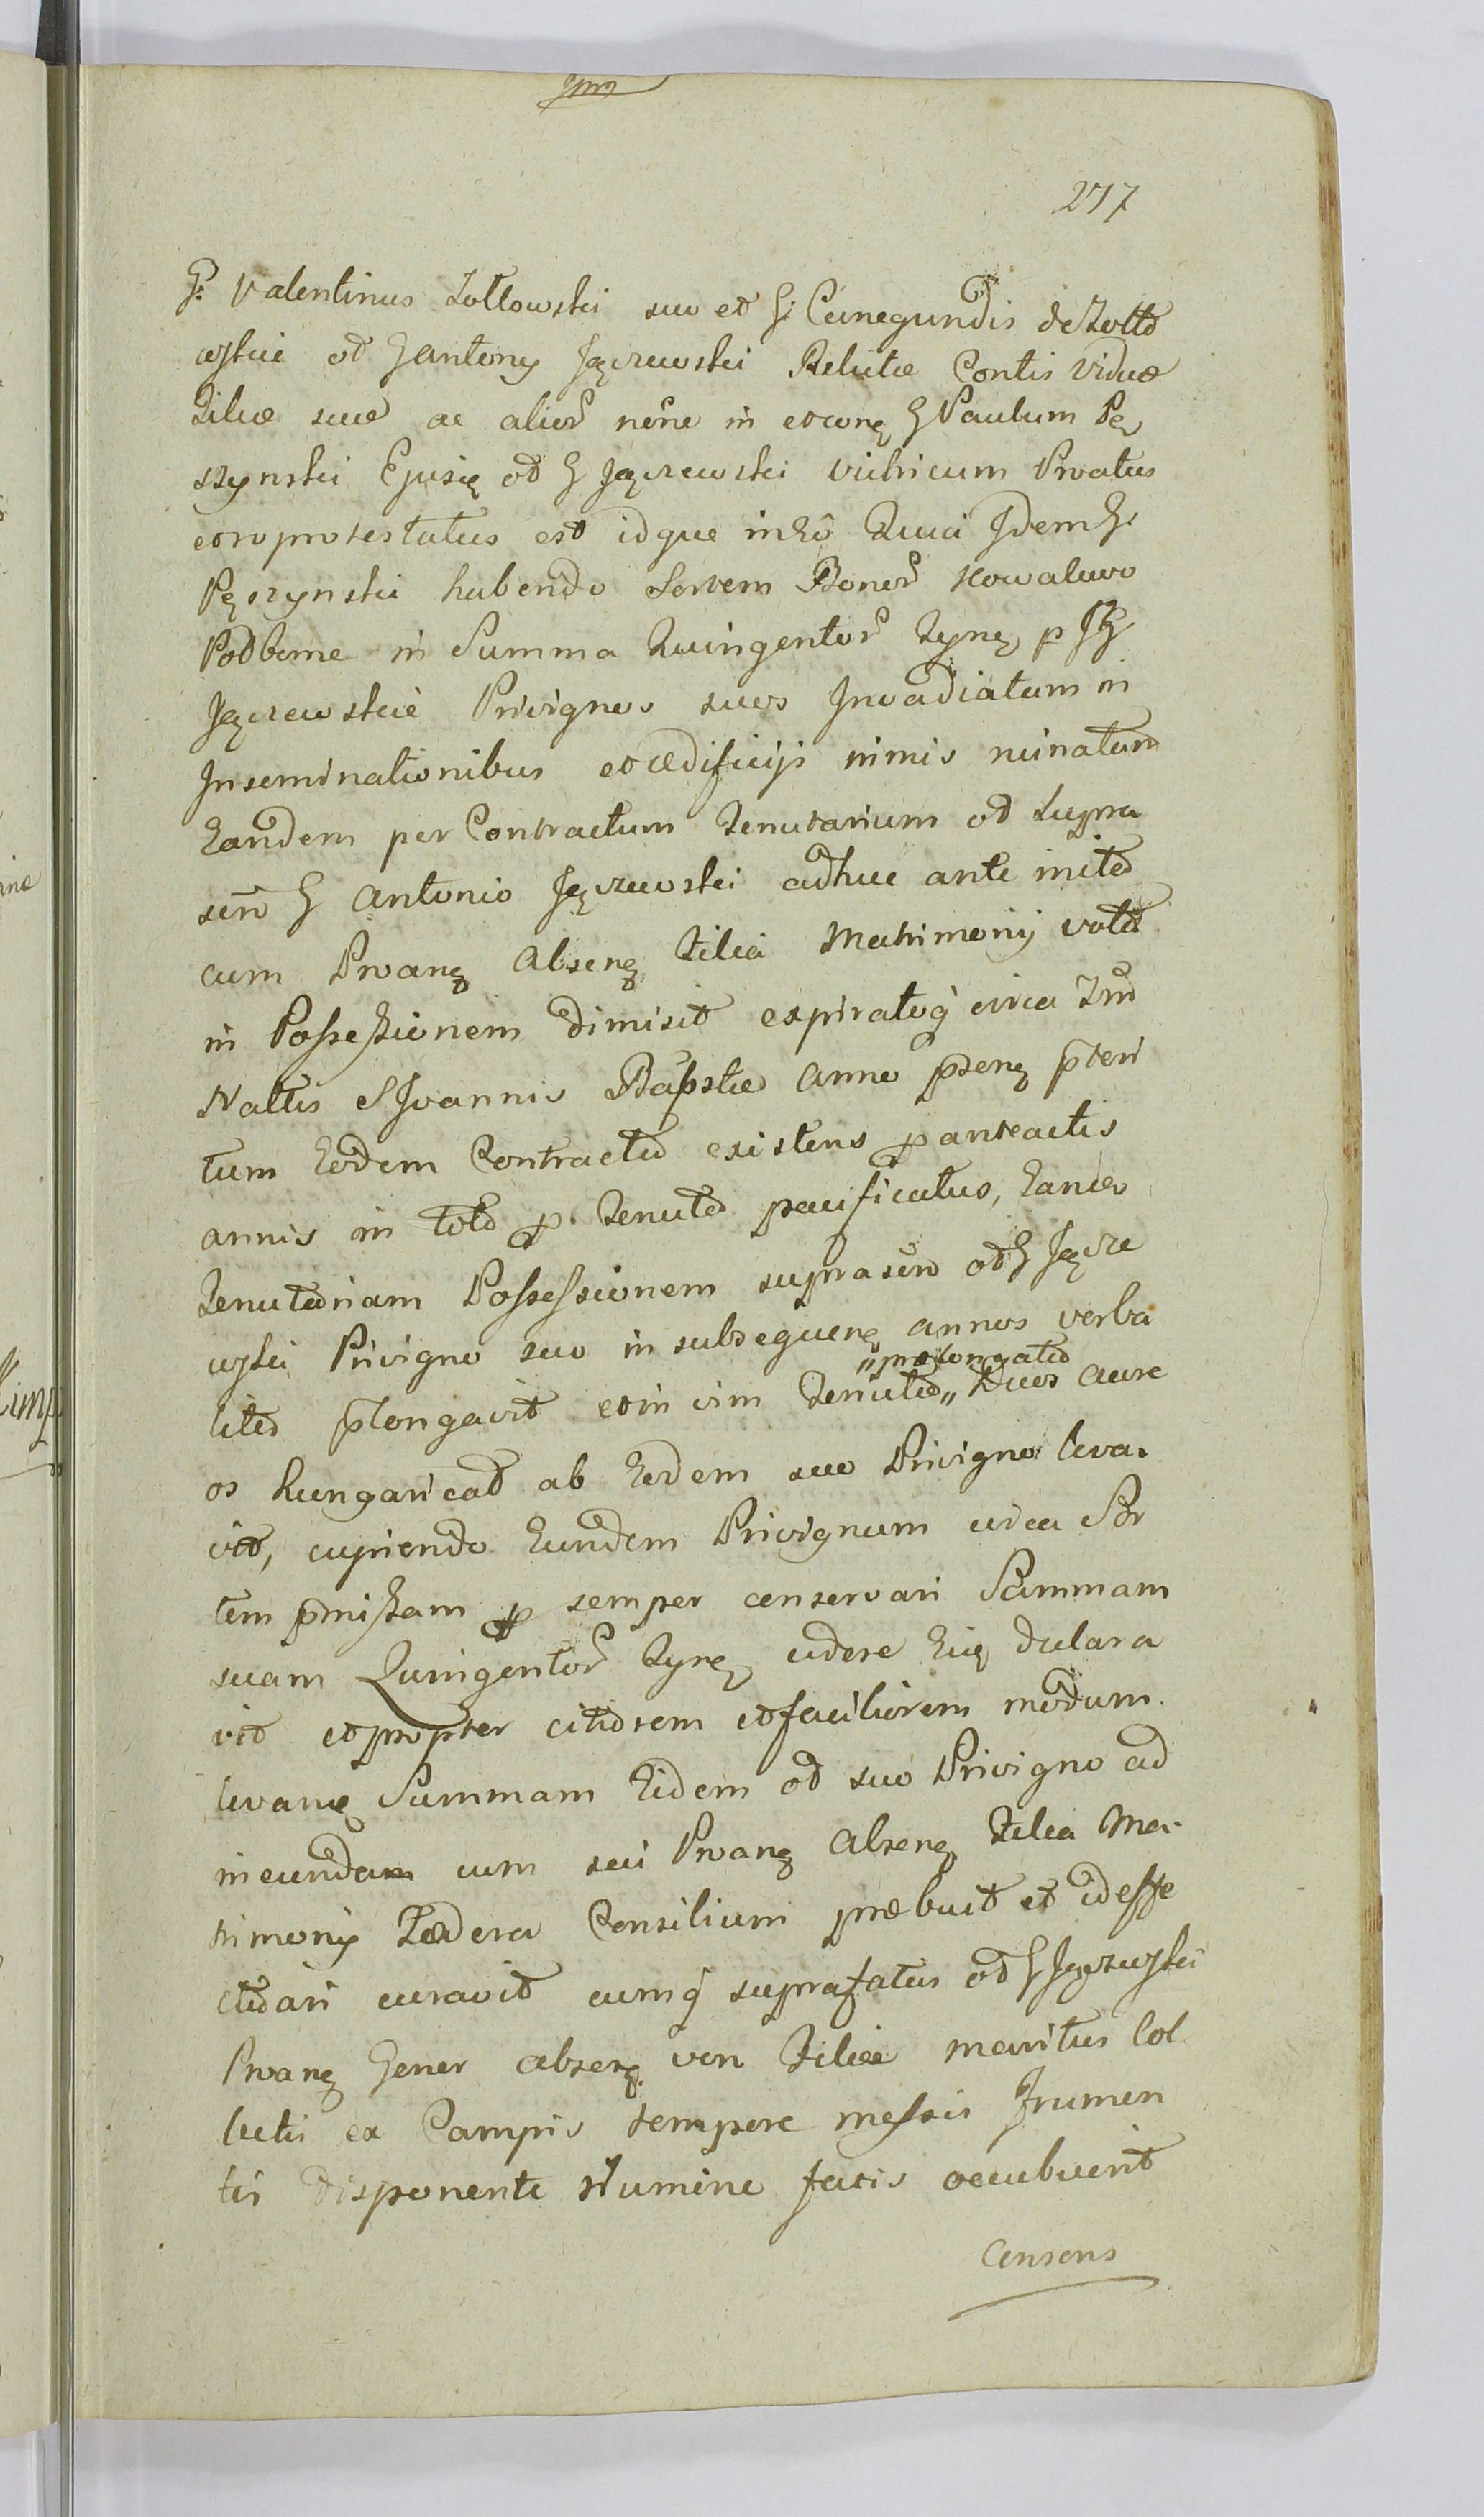 277
G. Valentinus Zołtowski suo et G. Cunegundis de Zołto
wskie od G Antony Jączewski Relictæ Contis Viduæ
Filiæ suæ ac alior nõne in et conq G Paulum Pę
szynski Ejusq od G Jączewski vitricum Proatus
con protestatus est idque in Eo Quia Idem G.
Pęszynski habendo Sortem Bonor Kowalewo
Podborne in Summa Quingentor Tynę p G G
Jączewskie Privignos suos Invadiatam in
Inseminationibus et ædificijs nimis ruinatam
Eandem per Contractum Tenutarium od Supra
scrip G Antonio Jączewski adhuc ante inita
cum Proanę Absenę Filia Matrimonij vota
in Possessionem dimisit expiratoq circa Fest
Nattis S Joannis Baptstæ Anno præsenę præteri
tum Eodem Contractu existens p anteactis
annis in toto p Tenuta pacificatus, Eande
Tenutariam Possessionem suprascrip od G Jącze
wski Privigno suo in subsequenę annos verba
liter prolongavit et in vim Tenutæ „prolongatæ„ Duos aure
os hungaricad ab Eodem suo Privigno leva
vit, cupiendo Eundem Privignum circa Sor
tem præmissam p semper conservari Summam
suam Quingentor Tynę cedere Eiq declara
vit et propter citiorem et faciliorem modum
levanę Summam Eidem od suo Privigno ad
ineundam cum sui Proanę Absenę Filia Ma
trimonij Fœdera Consilium præbuit et id effe
ctuari curavit cumq suprafatus od G Jączewski
Proanę Gener absenę vero Filiæ maritus Col
lectis ex Campis tempore messis Frumen
tis disponente Numine fatis occubuerit
Censens